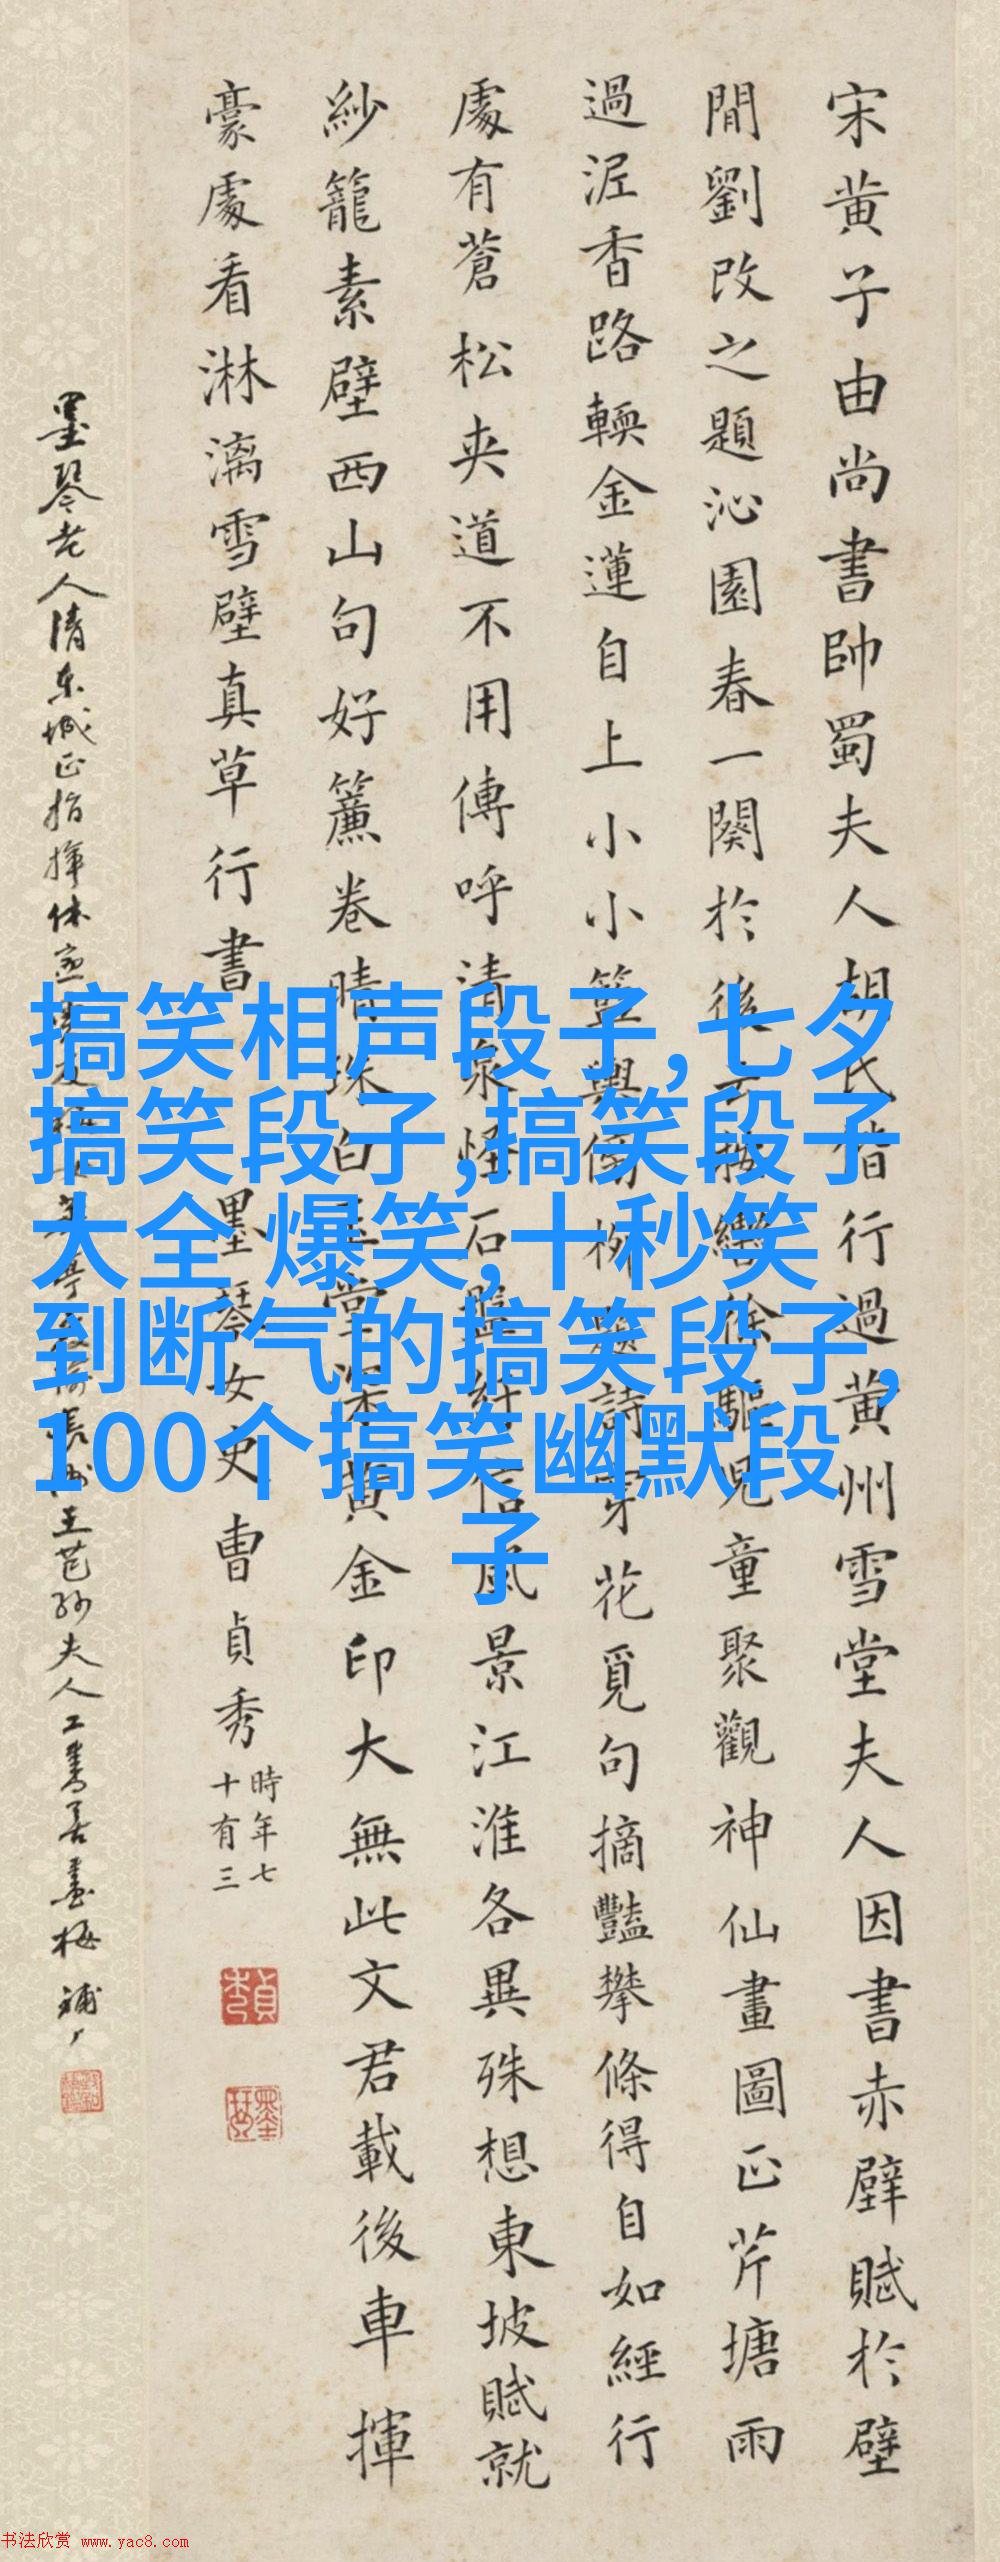 宋黄子由尚書帥蜀夫人胡氏偕行過黄州雪堂夫人因書赤壁賦於壁
間劉改之題沁園春一闋於後 驅児童聚觀神仙畫圖正芹塘雨
過泥香路輭金蓮自上小小籃輿 詩穿花覓句摘豔攀條得自如經行
處有蒼松夾道不用傳呼清泉怪石盤紆信風景江淮各異殊想東坡賦就
紗籠素壁西山句好簾卷晴珠白玉堂深黄金印大無此文君載後車揮
豪處看淋漓雪壁真草行書
墨琴女史曹貞秀時年七十有三
墨琴老人清東城正指揮休 王芑孫夫人工書善畫梅
搞笑相声段子,七夕
搞笑段子,搞笑段子
大全 爆笑,十秒笑
到断气的搞笑段子,
100个搞笑幽默段
子
书法欣赏 www.yac8.com